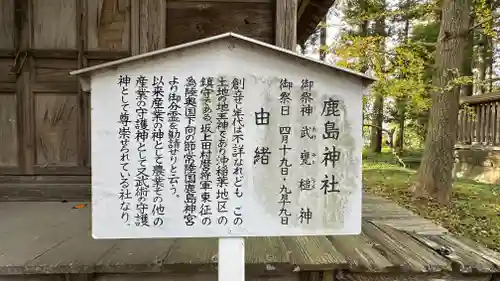 鹿島神社
御祭神 武甕槌神
御祭日 四月十九日・九月十九日
由緒
創立年代は不詳なれども この
土地の地主神であり沖稲葉地区の
鎮守である。坂上田村麿将軍東征の
為陸奥国下向の途常陸国鹿島神宮
より御分霊を勧請せりと云う。
以来産業の神としてその他の
産業の守護神として又武術の守護
神として尊崇されている社なり。